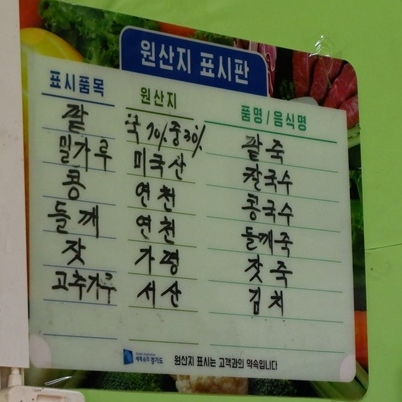 원산지 표시판
표시품목 원산지 품명/음식명
팥 국70%중30% 팥죽
밀가루 미국산 칼국수
콩 연천 콩국수
들깨 연천 들깨죽
잣 가평 잣죽
고추가루 서산 김치
세계속의 경기도 원산지 표시는 고객과의 약속입니다